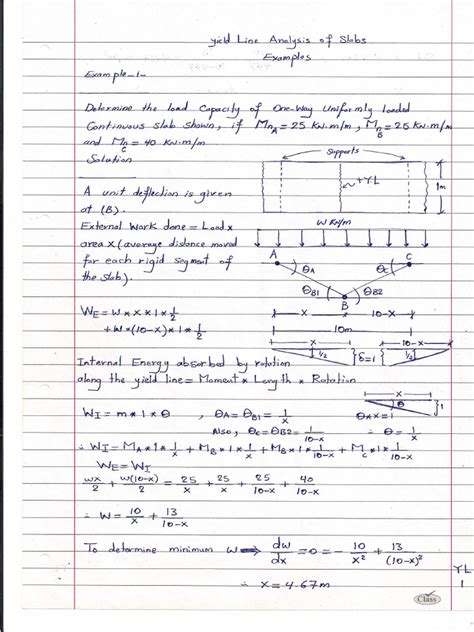 yield Line Analysis of Slabs
Examples
Example_1_
Determine the load Capacity of One-Way Uniformly loaded
Continuous slab Shown, if MnA = 25 KN.m/m, MnB = 25 KN.m/m
and MnC = 40 KN.m/m
Solution
supports
+YL
1m
A unit deflection is given
at (B).
External Work done = Load x
area x (average distance moved
for each rigid segment of
the slab).
W KN/m
A
θA
θC
C
θB1
θB2
B
x
10-x
10m
WE = W * X * 1 * 1/2
+ W * (10-x) * 1 * 1/2
x
10-x
1/2
δ=1
1/2
Internal Energy absorbed by rotation
along the yield line = Moment * Length * Rotation
x
θ
1
WI = m * 1 * θ , θA = θB1 = 1/x
θ * x = 1
Also, θC = θB2 = 1/10-x
∴ θ = 1/x
∴ WI = MA * 1 * 1/x + MB * 1 * 1/x + MB * 1 * 1/10-x + MC * 1 * 1/10-x
WE = WI
wx/2 + w(10-x)/2 = 25/x + 25/x + 25/10-x + 40/10-x
∴ W = 10/x + 13/10-x
To determine minimum w → dw/dx = 0 = - 10/x² + 13/(10-x)²
∴ x = 4.67m
YL
1
Class